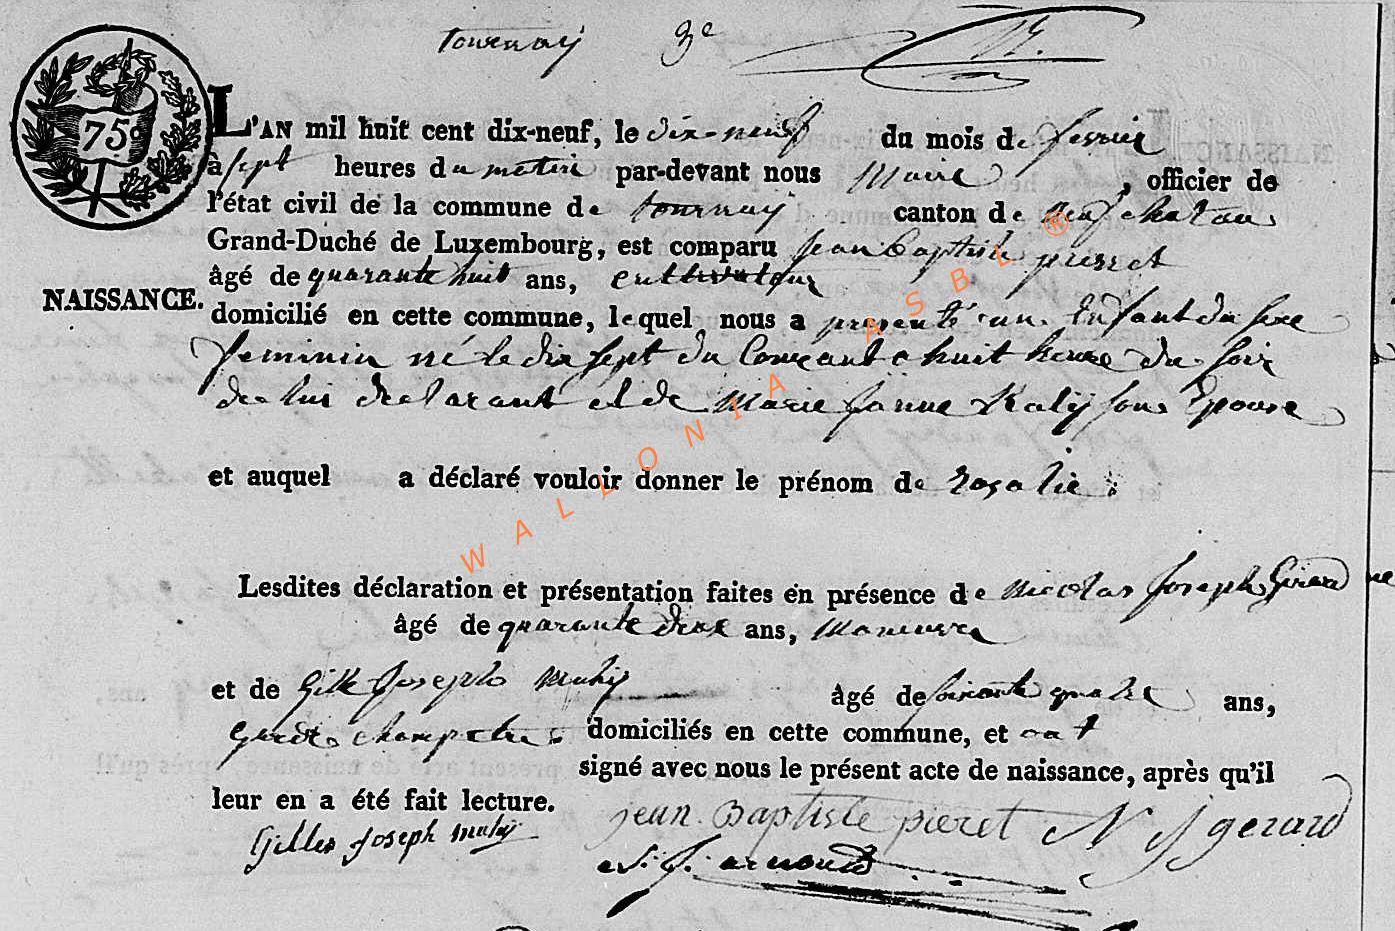 tournay 3e
75c
L'AN mil huit cent dix-neuf, le dix-neuf du mois de fevrier
à sept heures du matin par-devant nous Maire, officier de
l'état civil de la commune de tournay canton de neufchateau
Grand-Duché de Luxembourg, est comparu Jean Baptiste pierret
âgé de quarante huit ans, cultivateur
NAISSANCE.
domicilié en cette commune, lequel nous a presenté un Enfant du sexe
feminin né le dix sept du Courant a huit heure du soir
de lui declarant et de Marie Jeanne son Epouse
et auquel a déclaré vouloir donner le prénom de rosalie
Lesdites déclaration et présentation faites en présence de Nicolas Joseph Gerard
âgé de quarante deux ans, Manuvre
et de Gille Joseph Mahy âgé de soixante quatre ans,
garde champetre domiciliés en cette commune, et ont
signé avec nous le présent acte de naissance, après qu'il
leur en a été fait lecture.
Gilles Joseph Mahy jean Baptiste pieret N J gerard
WALLONIA ASBL ®